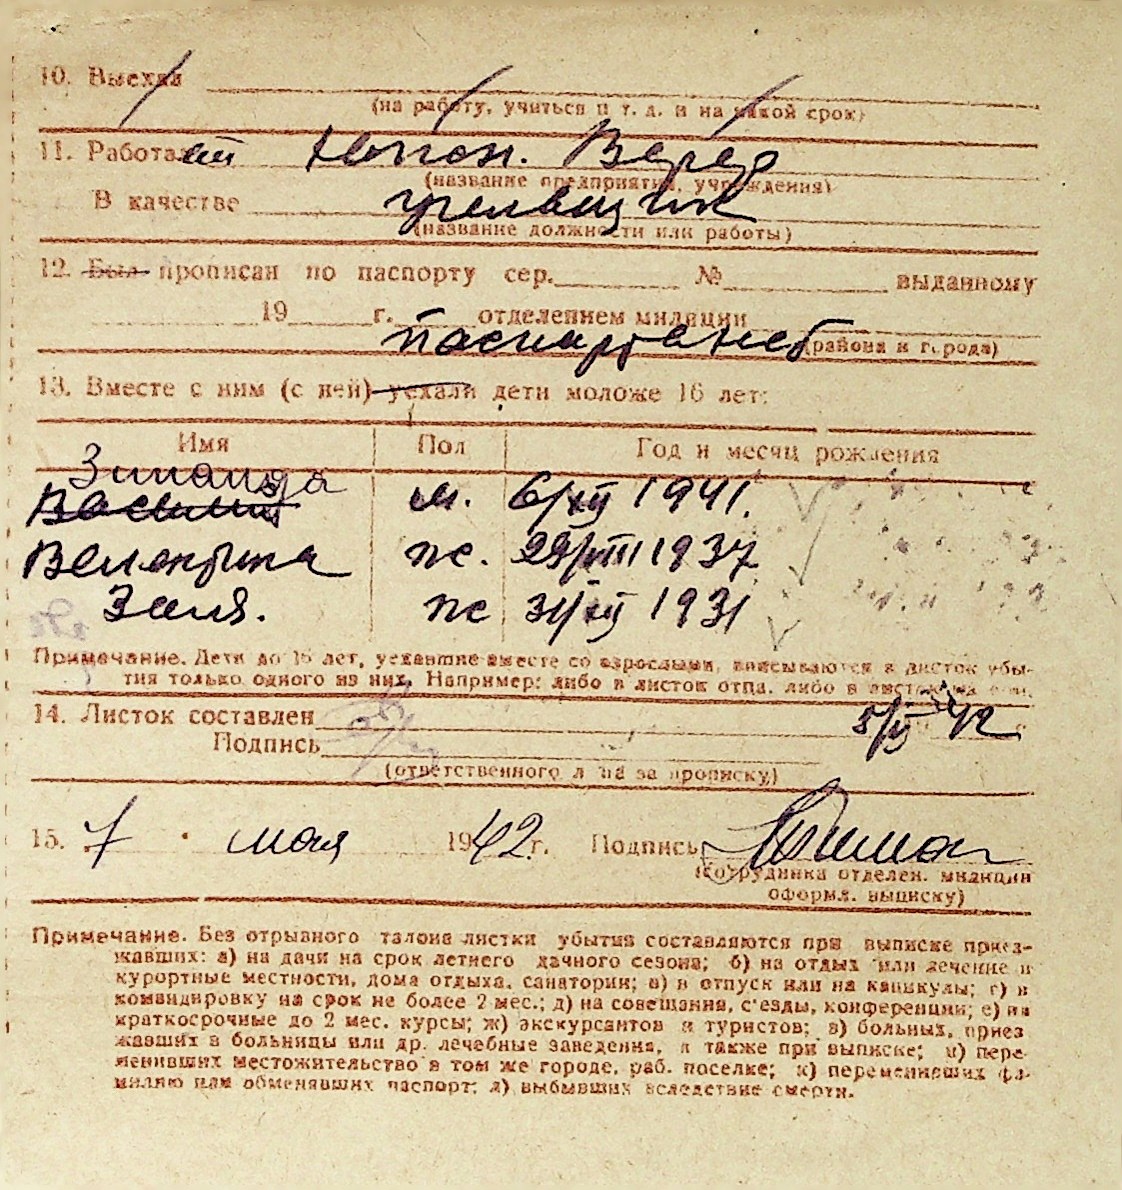 10. Выехал
(на работу, учиться и т. д. и на какой срок)
11. Работает
(название предприятия, учреждения)
В качестве
(название должности или работы)
12. Был прописан по паспорту сер. № выданному
19 г. отделением милиции
паспорта нет (района и города)
13. Вместе с ним (с ней) уехали дети моложе 16 лет:
Имя Пол Год и месяц рождения
Зинаида
Василий м. 6/XII 1941.
Валентина ж. 29/VIII 1937
Заля. ж 31/XII 1931
Примечание. Дети до 16 лет, уехавшие вместе со взрослыми, вписываются в листок убы-
тия только одного из них. Например: либо в листок отца, либо в листок
14. Листок составлен 42 г.
Подпись
(ответственного лица за прописку)
15. 7 мая 1942 г. Подпись
(сотрудника отделен. милиции
оформл. выписку)
Примечание. Без отрывного талона листки убытия составляются при выписке приез-
жавших: а) на дачи на срок летнего дачного сезона; б) на отдых или лечение в
курортные местности, дома отдыха, санатории; в) в отпуск или на каникулы; г) в
командировку на срок не более 2 мес.; д) на совещания, с'езды, конференции; е) на
краткосрочные до 2 мес. курсы; ж) экскурсантов и туристов; з) больных, приез
жавших в больницы или др. лечебные заведения, а также при выписке; и) пере-
менивших местожительство в том же городе, раб. поселке; к) переменивших фа-
милию или обменявших паспорт; л) выбывших вследствие смерти.